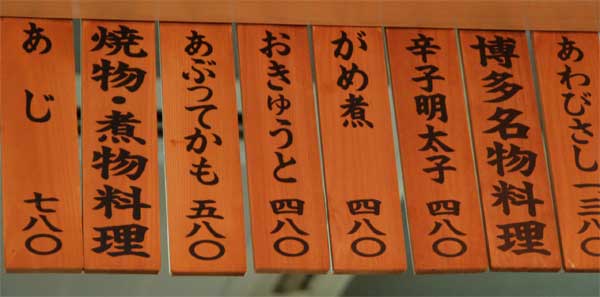 あわびさし 一三八〇
博多名物料理
辛子明太子 四八〇
がめ煮 四八〇
おきゅうと 四八〇
あぶってかも 五八〇
焼物・煮物料理
あじ 七八〇